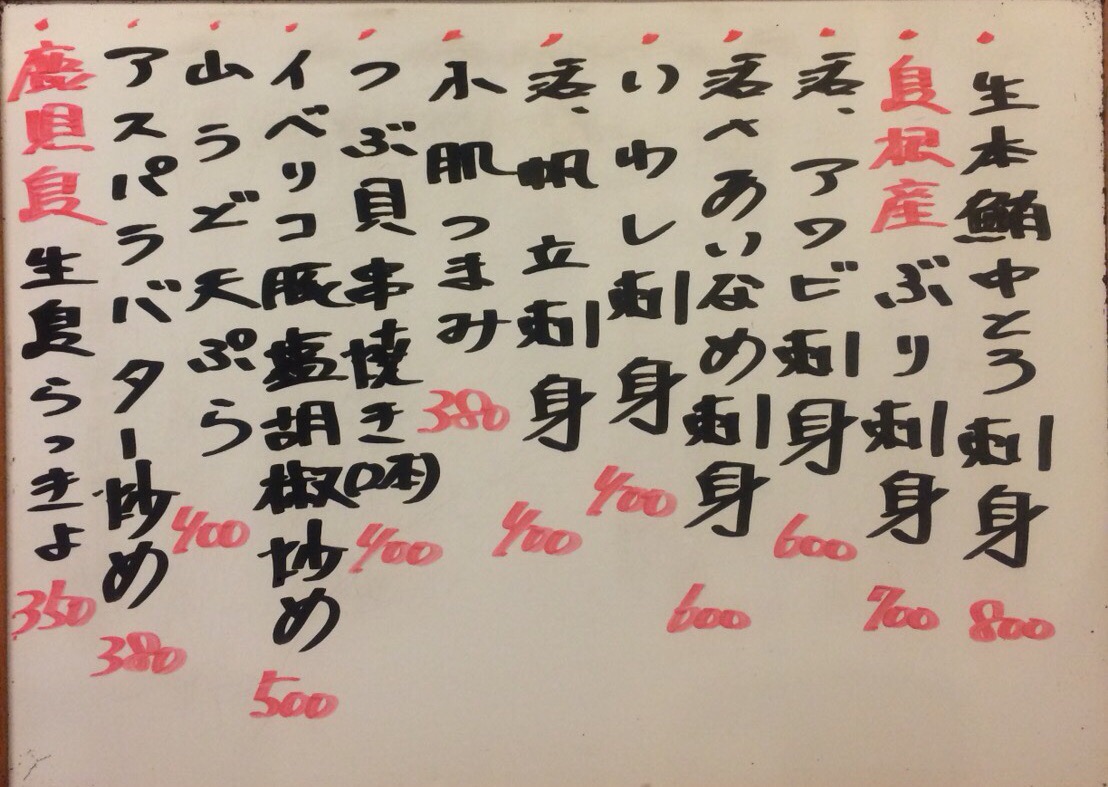 生本鮪中とろ刺身 800
島根産ぶり刺身 700
活、アワビ刺身 600
活〆あいなめ刺身 600
いわし刺身 400
活、帆立刺身 400
小肌つまみ 380
つぶ貝串焼き(2本) 400
イベリコ豚塩胡椒炒め 500
山うど天ぷら 400
アスパラバター炒め 380
鹿児島生島らっきょ 350